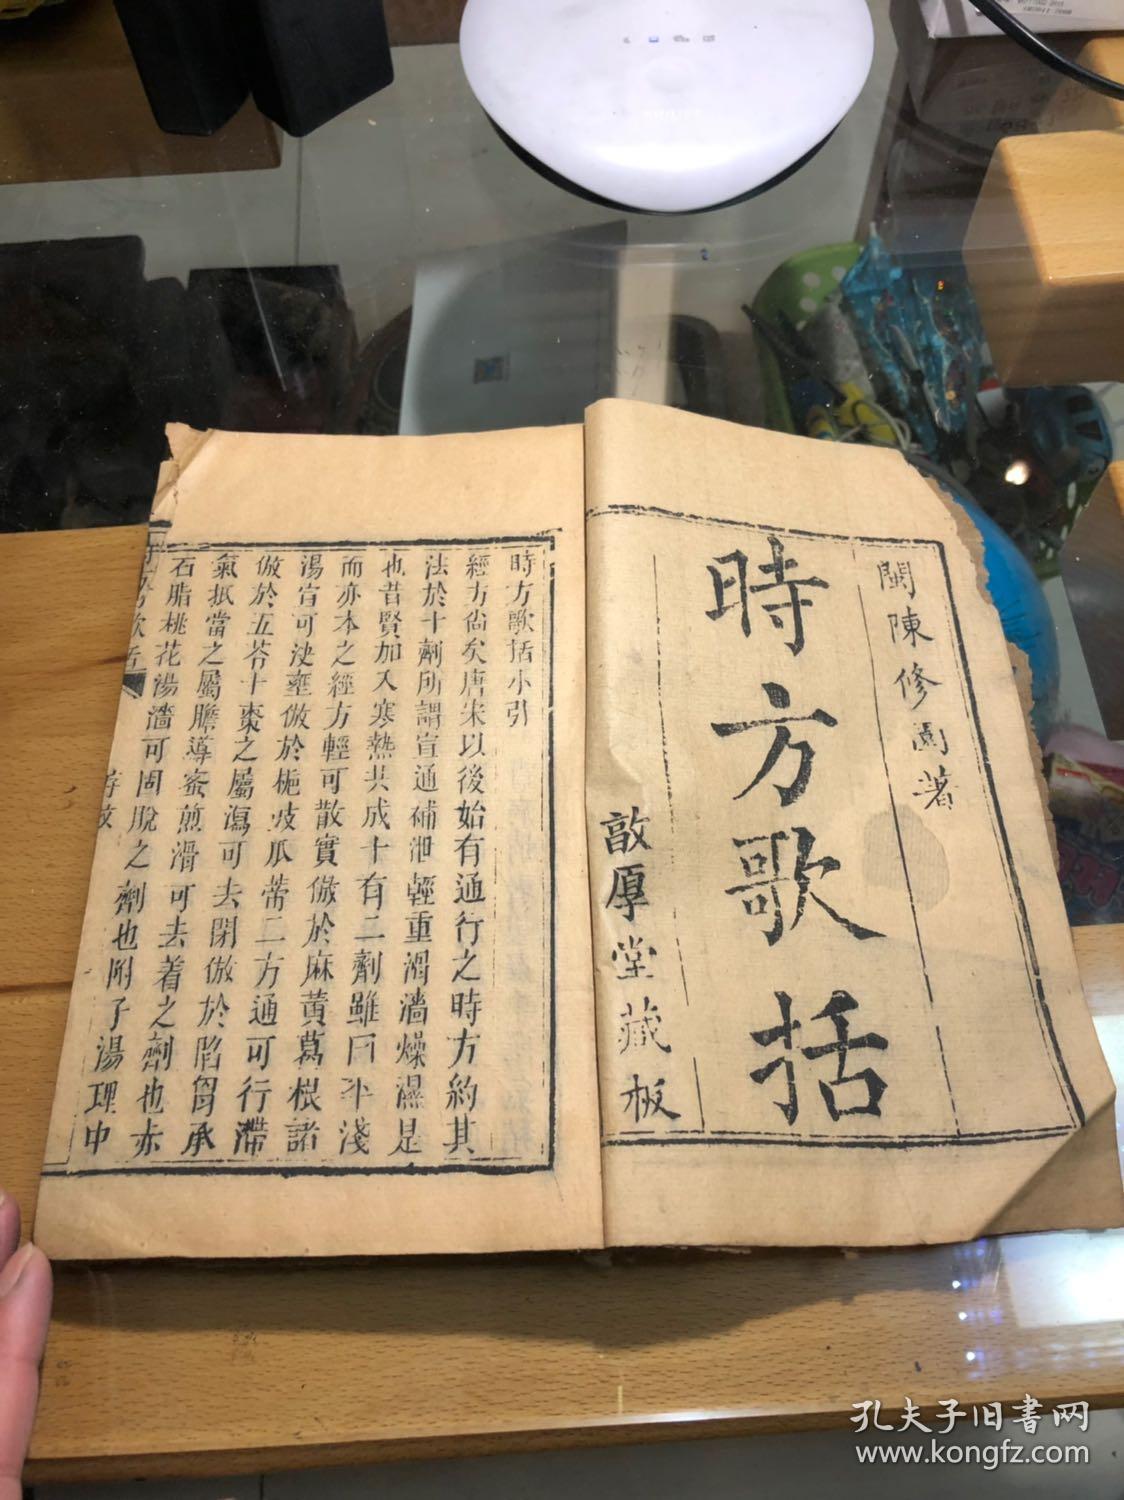 閩陳修園著
時方歌括
敦厚堂藏板
時方歌括小引
經方尙矣唐宋以後始有通行之時方約其
法於十劑所謂宣通補泄輕重滑濇燥濕是
也昔賢加入寒熱共成十有二劑雖曰平淺
而亦本之經方輕可散實倣於麻黃葛根諸
湯宣可決壅倣於梔豉瓜蒂二方通可行滯
倣於五苓十棗之屬瀉可去閉倣於陷胷承
氣抵當之屬膽導蜜煎滑可去着之劑也赤
石脂桃花湯濇可固脫之劑也附子湯理中
孔夫子旧書网
www.kongfz.com